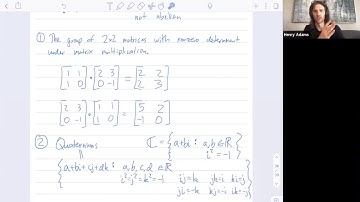 not abelian
① The group of 2x2 matrices with nonzero determinant
under matrix multiplication.
[1 1; 1 0] · [2 3; 0 -1] = [2 2; 2 3]
[2 3; 0 -1] · [1 1; 1 0] = [5 2; -1 0]
② Quaternions ℂ = {a+bi : a,b ∈ ℝ
i² = -1}
{a+bi+cj+dk : a,b,c,d ∈ ℝ
i²=j²=k²=-1 ij=k jk=i ki=j
ji=-k kj=-i ik=-j}
Henry Adams